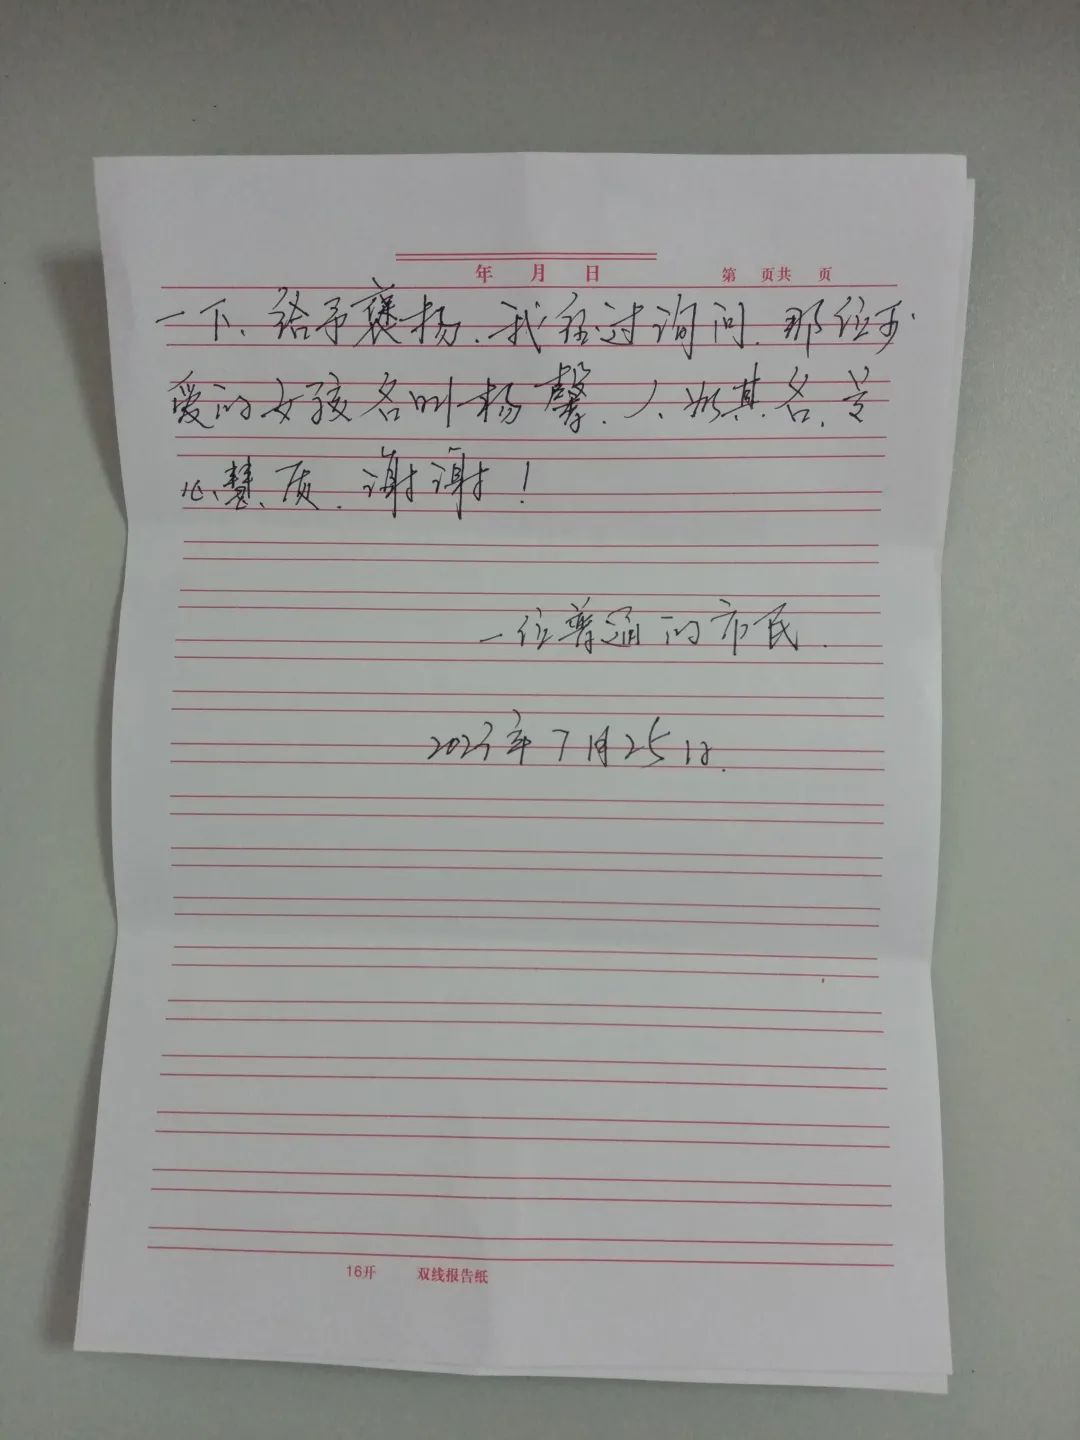 年 月 日 第 页共 页
一下、给予褒扬.我经过询问.那位可
爱的女孩名叫杨馨.人如其名.兰
心慧质.谢谢！
一位普通的市民.
2023年7月25日.
16开 双线报告纸